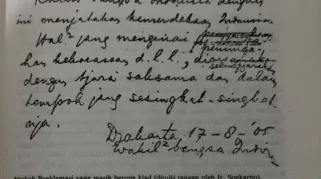 bangsa Indonesia dengan
ini menjatakan kemerdekaan Indonesia
Hal² jang mengenai
kan kekoeasaan d.l.l.,
dengan tjara saksama dan dalam
tempoh jang sesingkat-singkat
nja.
Djakarta, 17-8-'05
Wakil² bangsa Indon
Naskah Proklamasi yang masih berupa klad (ditulis tangan oleh Ir. Soekarno).